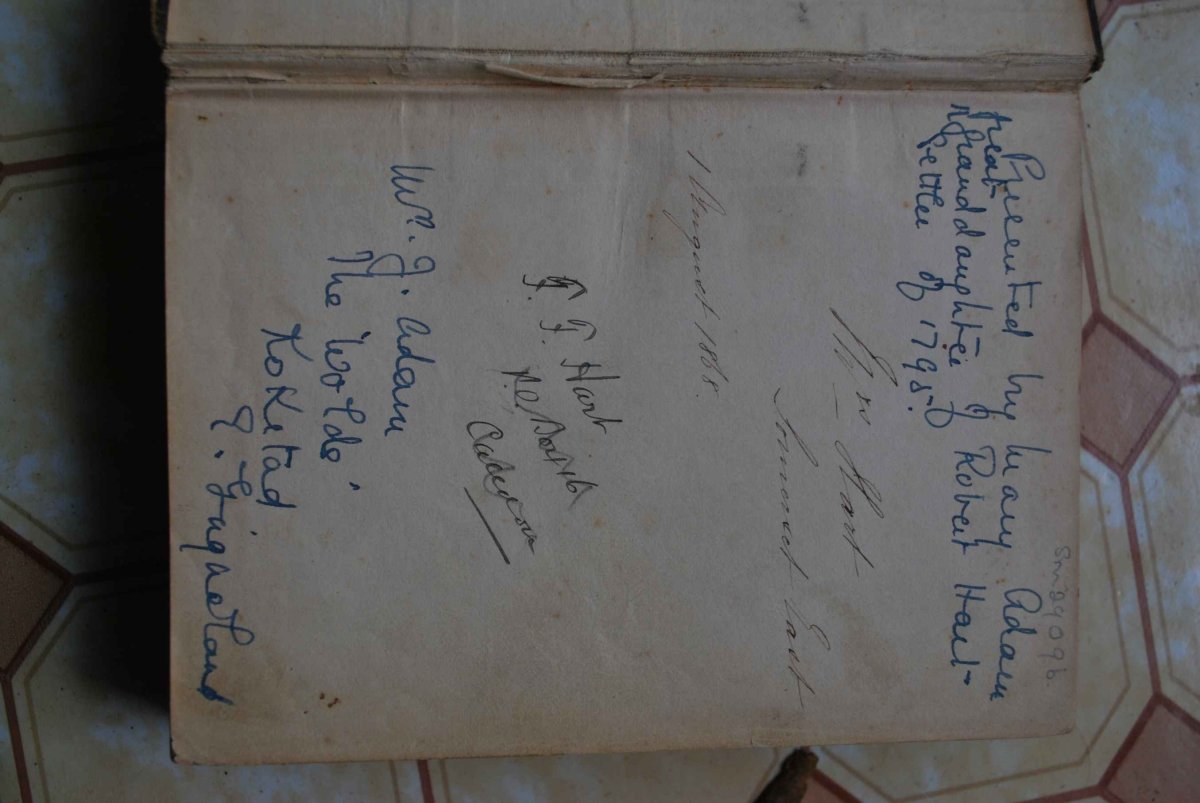 Sm 2909b.
Presented by Mary Adam
great granddaughter of Robert Hart
Settler of 1795.
Wm Hart
Somerset East
1 August 1868.
T. F. Hart
Wm. J. Adam
The 'Wolds'
Kokstad
E. Griqualand